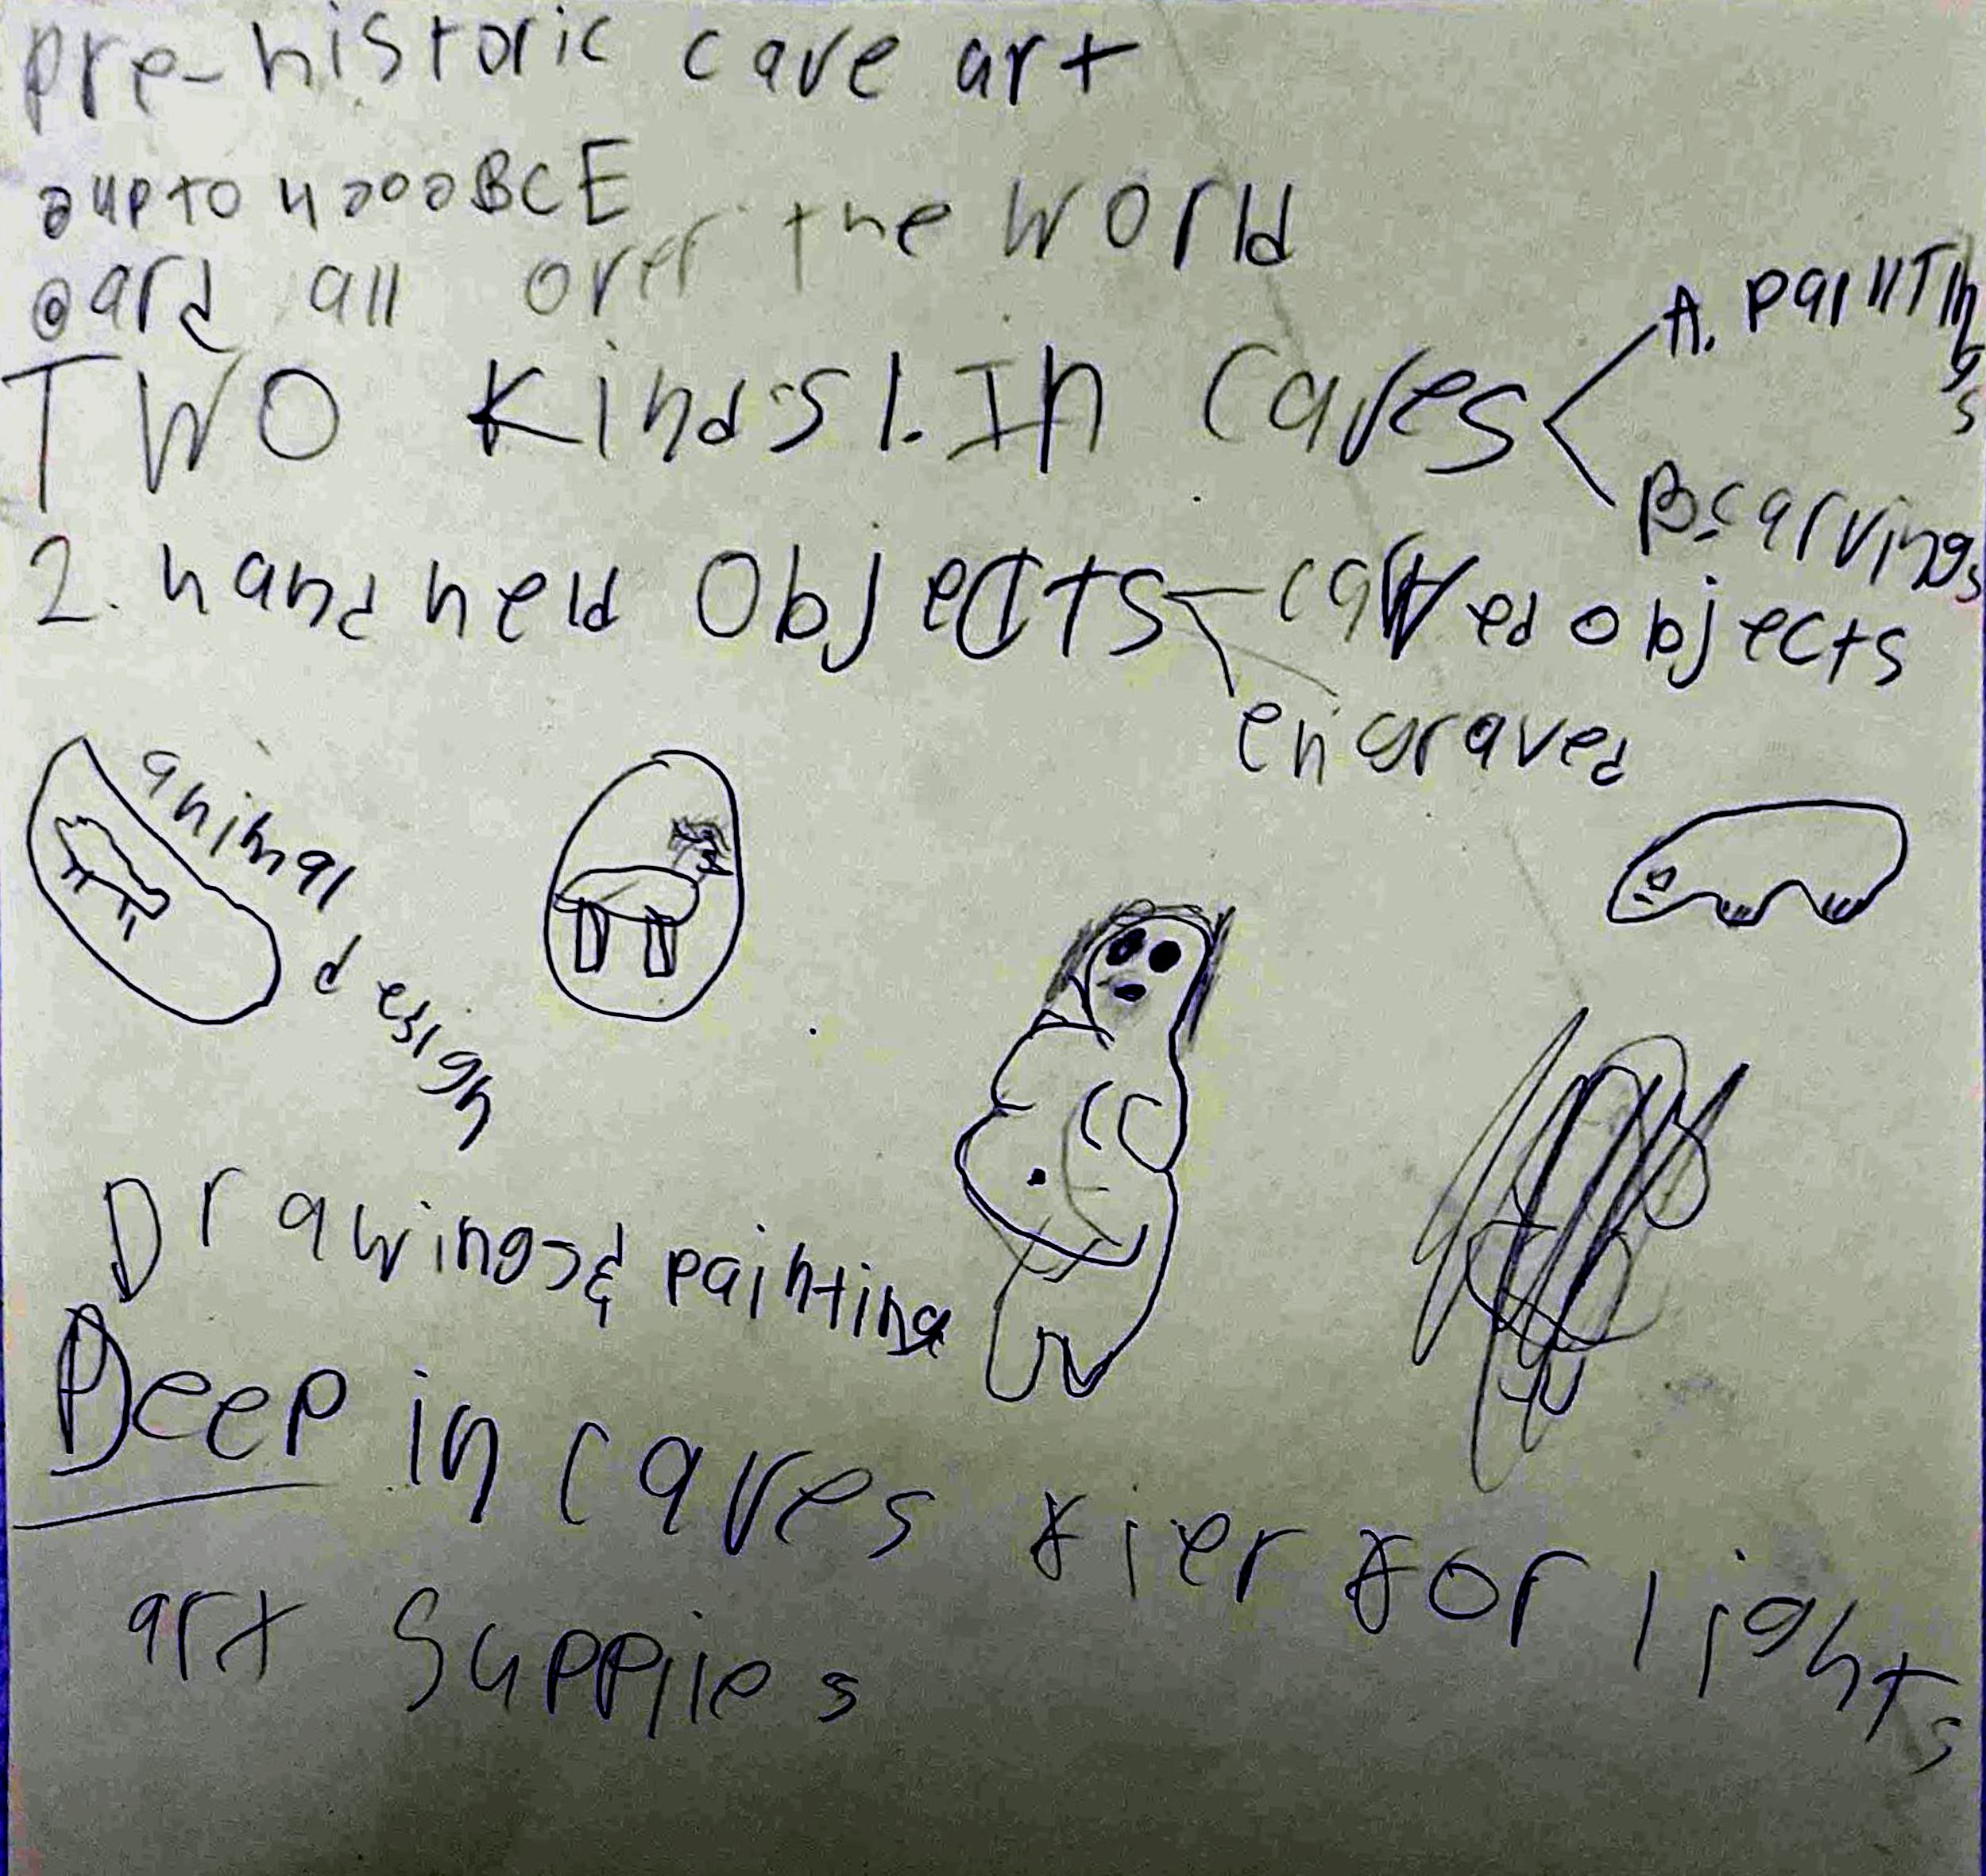 pre-historic cave art
up to 4000 BCE
all over the world
TWO Kinds 1. In Caves
A. paintings
B. carvings
2. hand held Objects
carved objects
engraved
animal design
Drawings & painting
Deep in caves fier for lights
art supplies